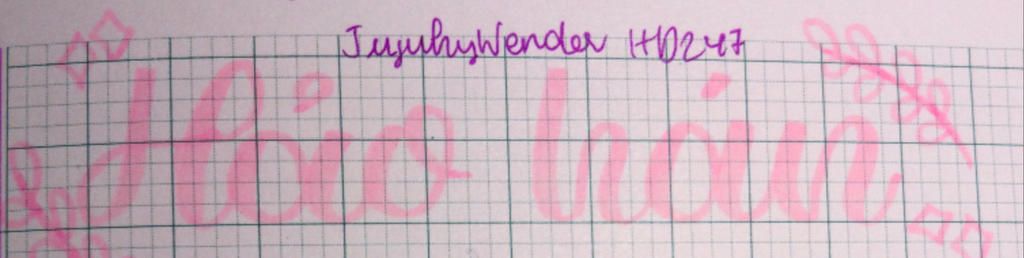 JujuhyWender HD247
Hảo hán